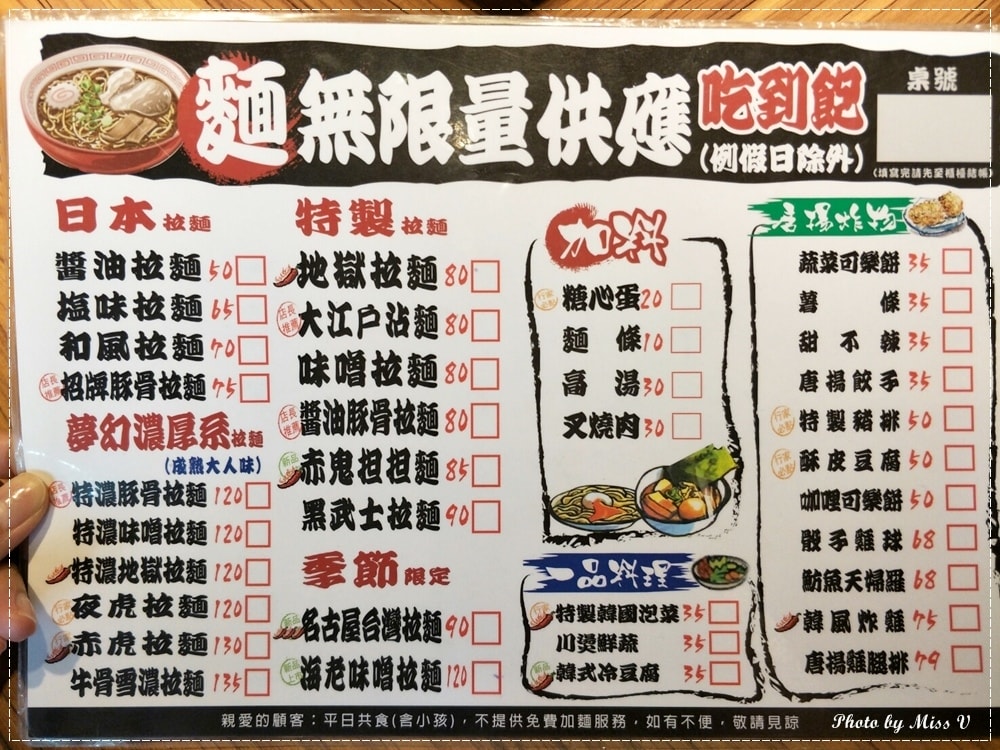 麵無限量供應吃到飽
(例假日除外)
桌號
(填寫完請先至櫃檯結帳)
日本拉麵
醬油拉麵 50
塩味拉麵 65
和風拉麵 70
店長推薦 招牌豚骨拉麵 75
夢幻濃厚系拉麵
(成熟大人味)
店長推薦 特濃豚骨拉麵 120
特濃味噌拉麵 120
特濃地獄拉麵 120
行家必點 夜虎拉麵 120
行家必點 赤虎拉麵 130
牛骨雪濃拉麵 135
特製拉麵
地獄拉麵 80
店長推薦 大江戶沾麵 80
味噌拉麵 80
店長推薦 醬油豚骨拉麵 80
新品上市 赤鬼担担麵 85
黑武士拉麵 90
季節限定
新品上市 名古屋台灣拉麵 90
新品上市 海老味噌拉麵 120
加料
行家必點 糖心蛋 20
麵條 10
高湯 30
叉燒肉 30
一品料理
行家必點 特製韓國泡菜 35
川燙鮮蔬 35
韓式冷豆腐 35
唐揚炸物
蔬菜可樂餅 35
薯條 35
甜不辣 35
唐揚餃子 35
行家必點 特製豬排 50
行家必點 酥皮豆腐 50
咖哩可樂餅 50
骰子雞球 68
魴魚天婦羅 68
韓風炸雞 75
唐揚雞腿排 79
親愛的顧客：平日共食(含小孩)，不提供免費加麵服務，如有不便，敬請見諒
Photo by Miss V